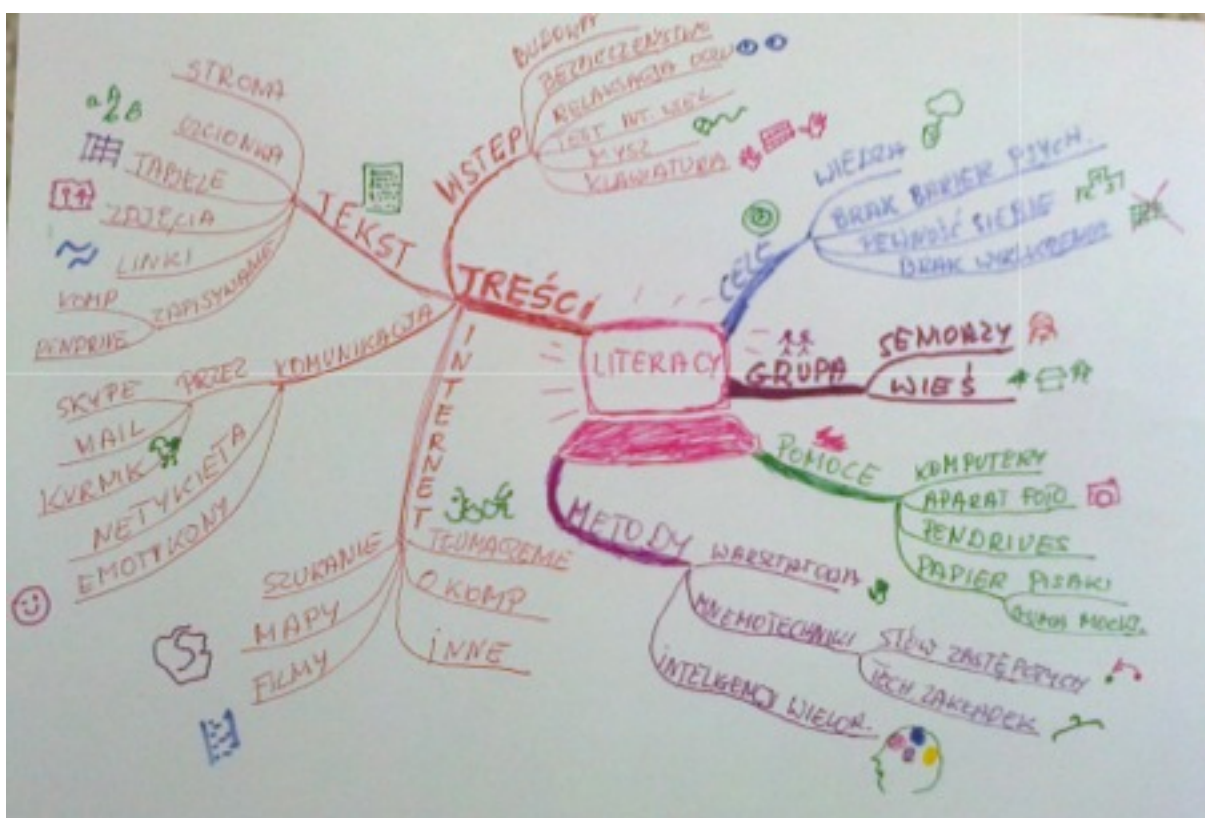 LITERACY
TREŚCI
WSTĘP
BUDOWA
BEZPIECZEŃSTWO
RELAKSACJA OCZU
MYSZ
KLAWIATURA
TEKST
STRONA
TABELE
ZDJĘCIA
LINKI
ZAPISYWANIE
KOMP
PENDRIVE
KOMUNIKACJA
PRZEZ
SKYPE
MAIL
KURNIK
NETYKIETA
EMOTYKONY
INTERNET
SZUKANIE
MAPY
FILMY
TŁUMACZENIE
O KOMP
INNE
CELE
WIEDZA
BRAK BARIER PSYCH.
PEWNOŚĆ SIEBIE
BRAK
GRUPA
SENIORZY
WIEŚ
POMOCE
KOMPUTERY
APARAT FOTO
PENDRIVES
PAPIER PISAKI
METODY
WARSZTATOWA
MNEMOTECHNIKI
SŁÓW ZASTĘPCZYCH
TECH. ZAKŁADEK
INTELIGENCJI WIELOR.